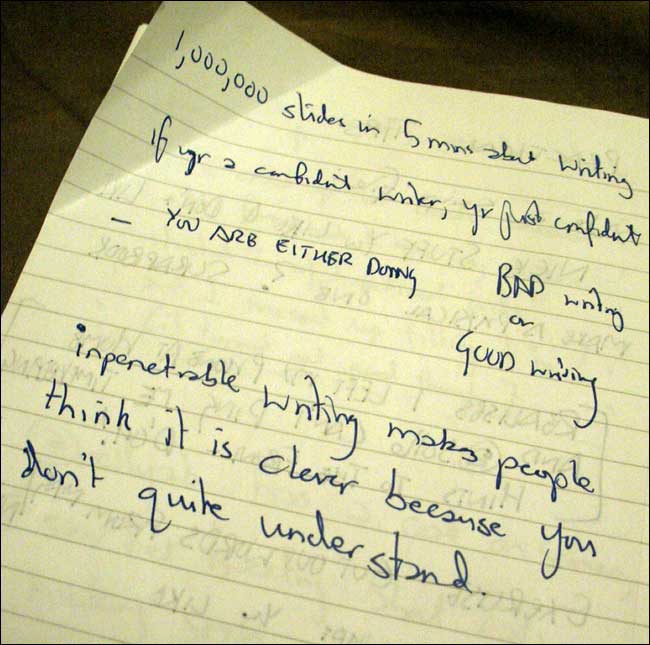 1,000,000 slides in 5 mins about writing
If yr a confident writer, yr just confident
– YOU ARE EITHER DOING BAD writing
or
GOOD writing
inpenetrable writing makes people
think it is clever because you
don't quite understand.